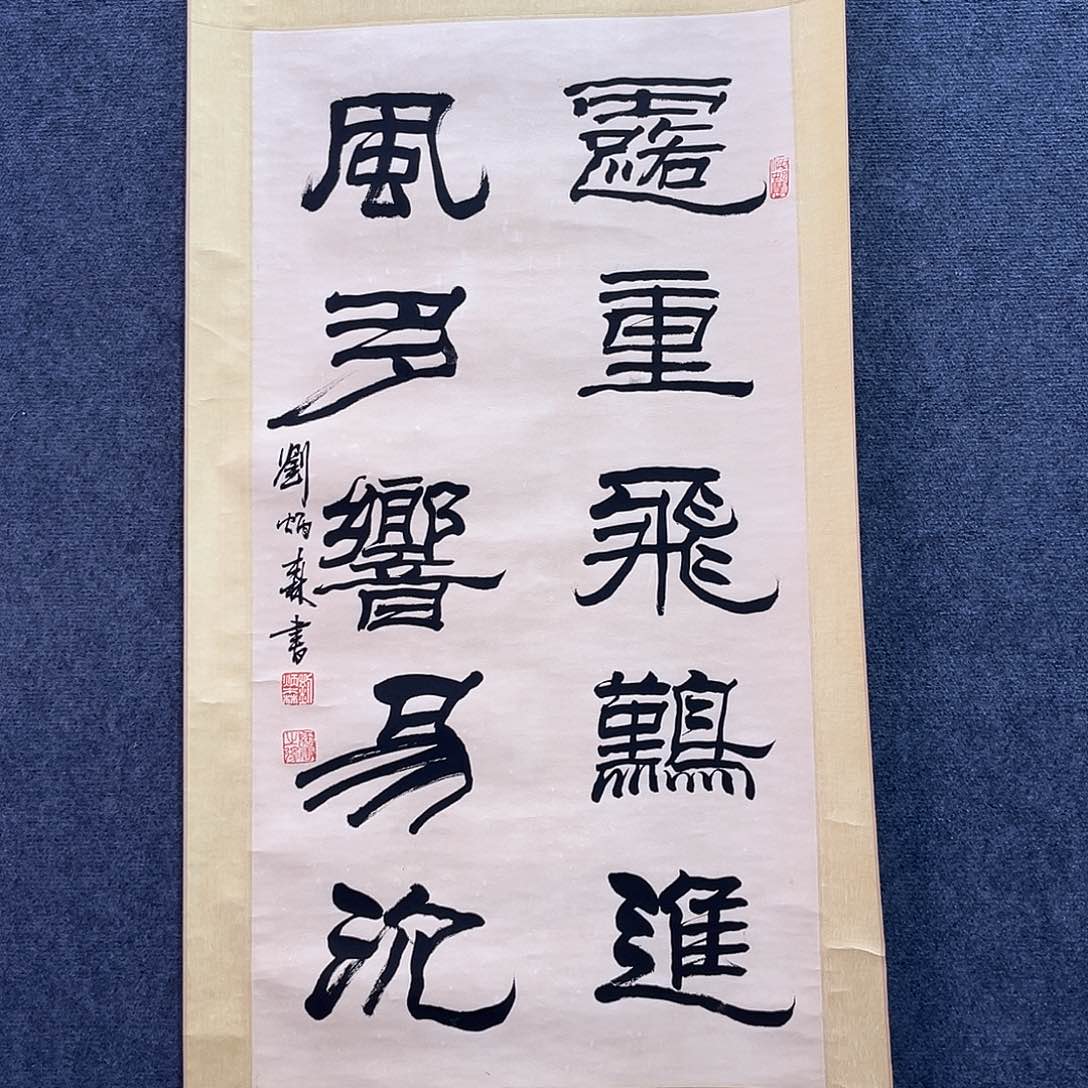 露重飛難進
風多響易沉
劉炳森書
劉炳森